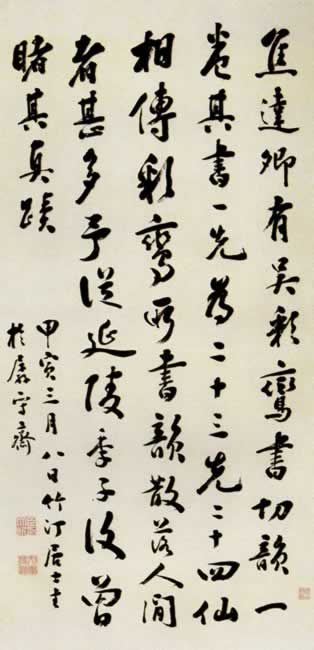 焦達卿有吳彩鸞書切韻一
卷其書一先為二十三先二十四仙
相傳彩鸞所書韻散落人間
者甚多予從延陵季子後曾
睹其真蹟
甲寅三月八日竹汀居士書
於孱守齋